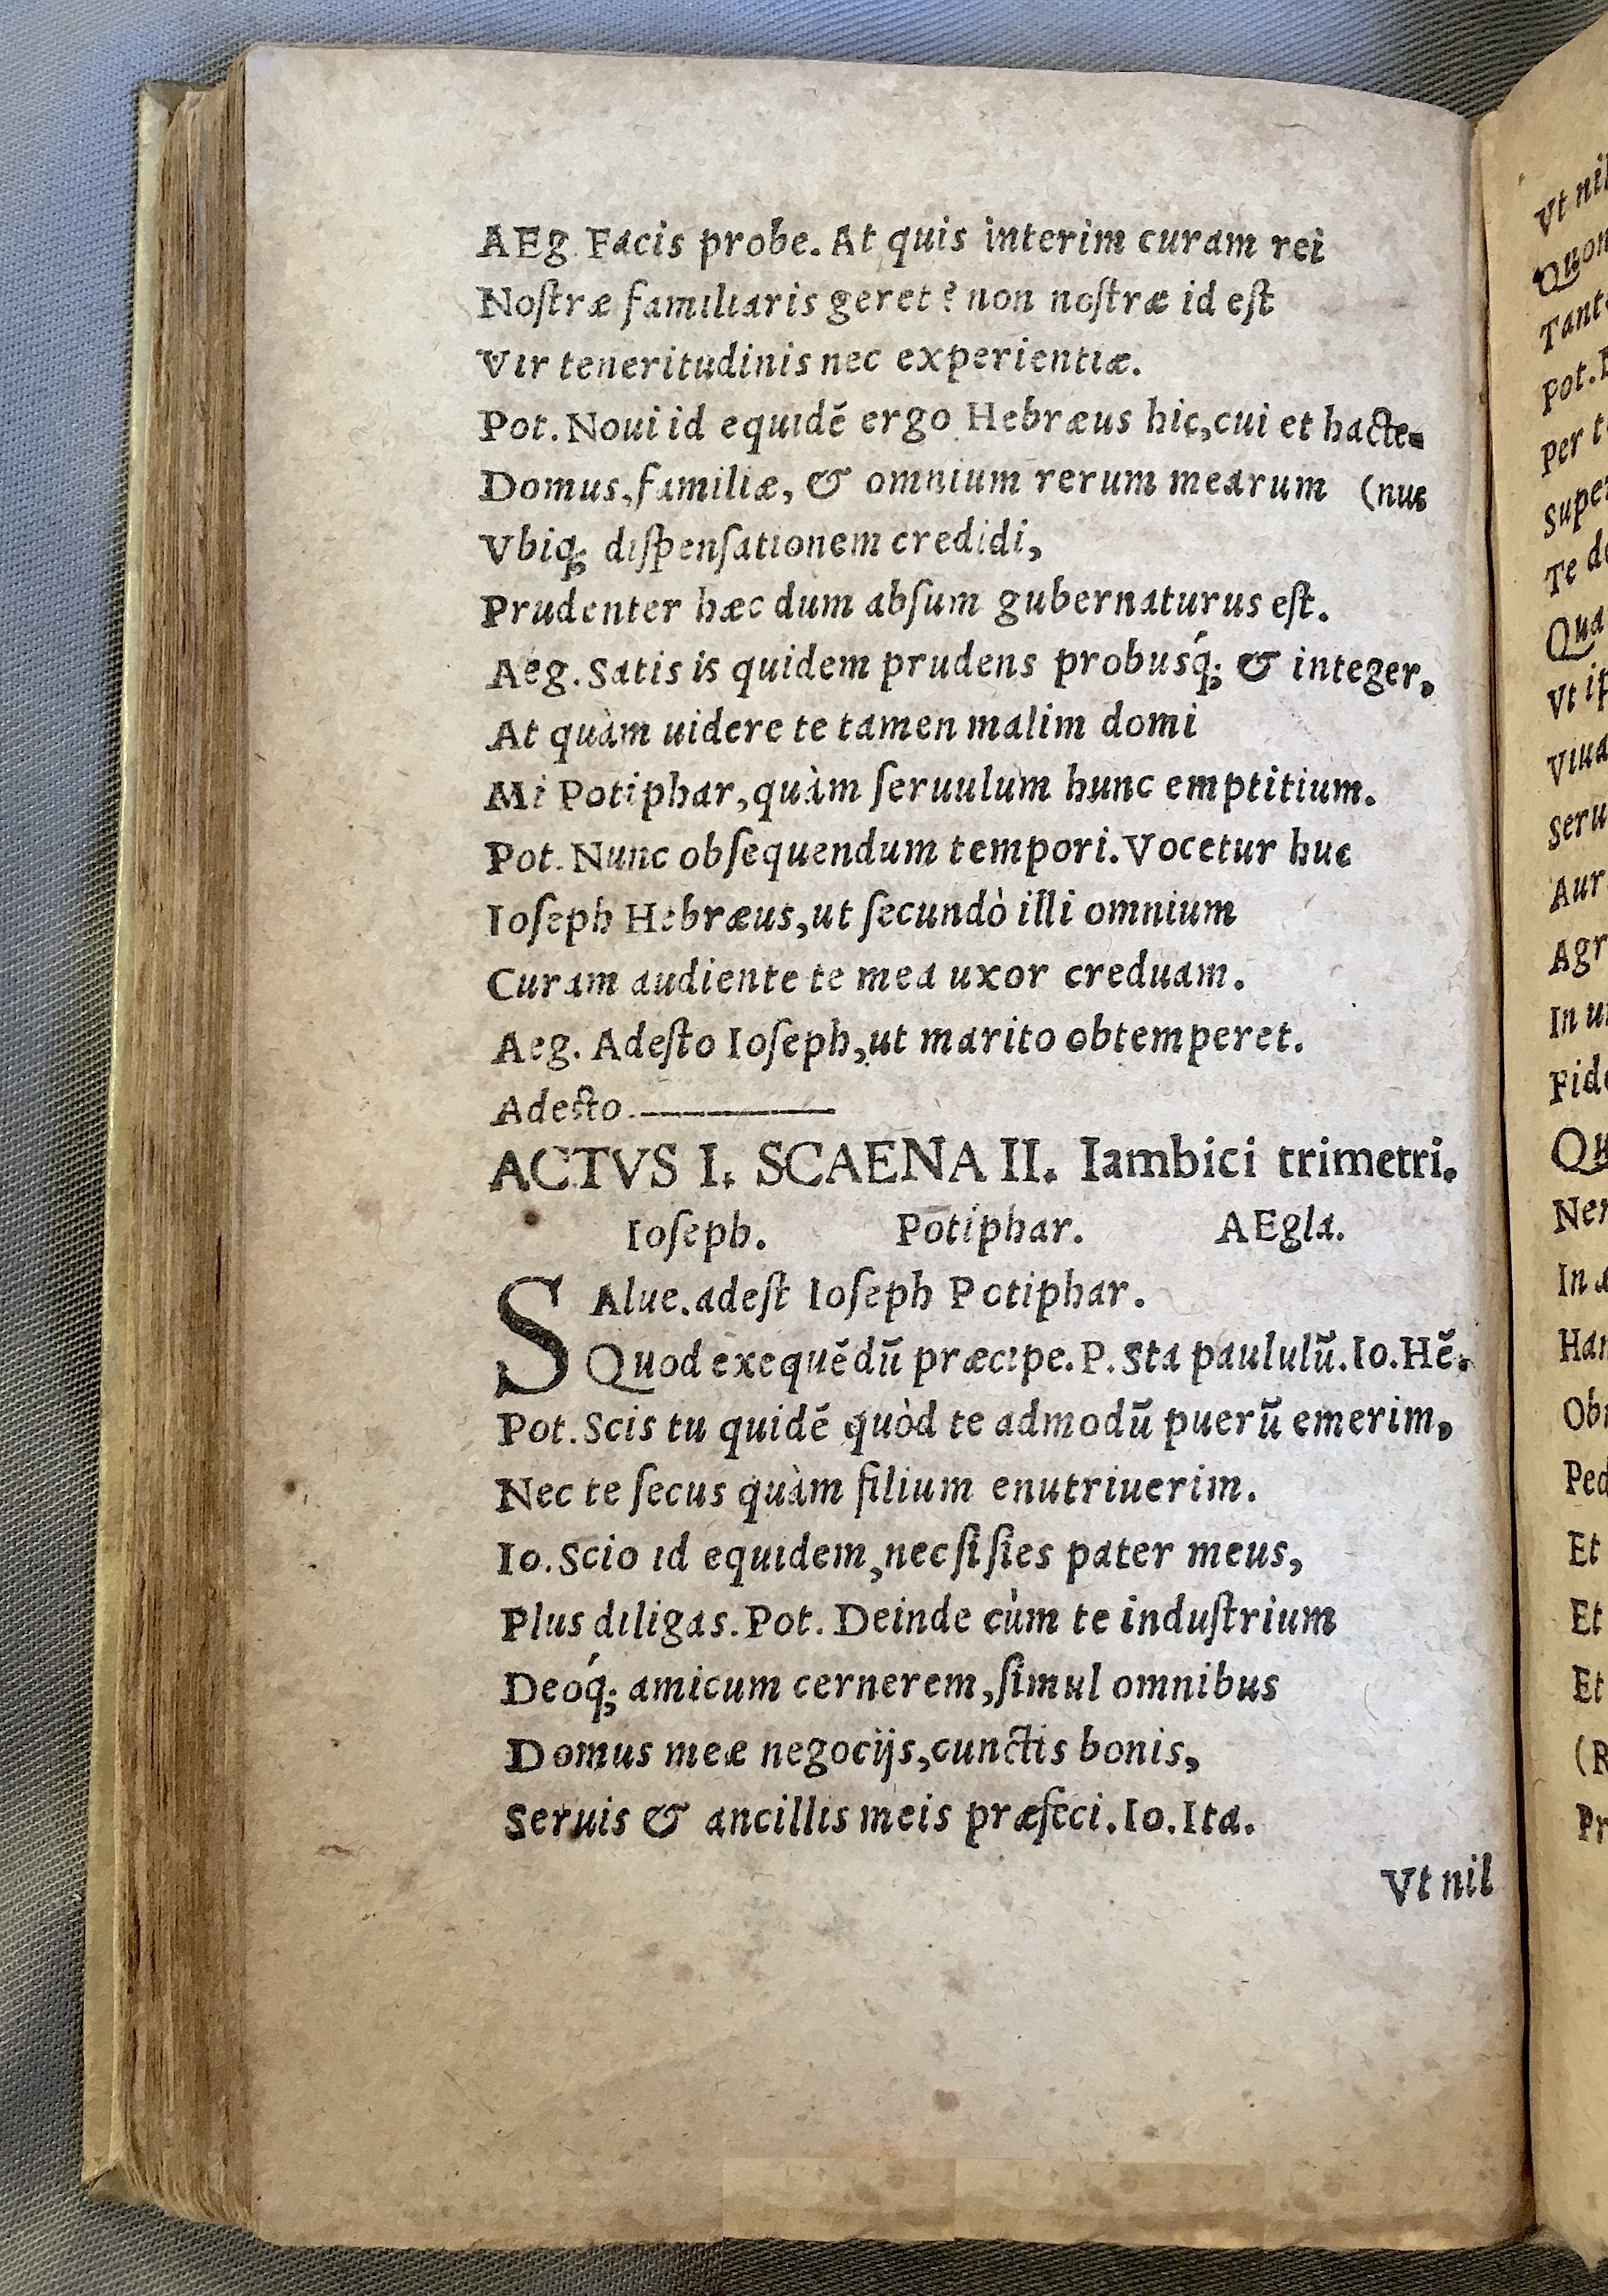 AEg. Facis probe. At quis interim curam rei
Noſtræ familiaris geret? non noſtræ id eſt
Vir teneritudinis nec experientiæ.
Pot. Noui id equidē ergo Hebræus hic, cui et hacte-
Domus, familiæ, & omnium rerum mearum (nus
Vbiq; diſpenſationem credidi,
Prudenter hæc dum abſum gubernaturus eſt.
Aeg. Satis is quidem prudens probusq́; & integer,
At quàm uidere te tamen malim domi
Mi Potiphar, quàm ſeruulum hunc emptitium.
Pot. Nunc obſequendum tempori. Vocetur huc
Ioſeph Hebræus, ut ſecundò illi omnium
Curam audiente te mea uxor creduam.
Aeg. Adeſto Ioſeph, ut marito obtemperet.
Adesto.————
ACTVS I. SCAENA II. Iambici trimetri.
Ioſeph. Potiphar. AEgla.
SAlue. adeſt Ioſeph Potiphar.
Quod exequēdū præcipe. P. Sta paululū. Io. Hē.
Pot. Scis tu quidē quòd te admodū puerū emerim,
Nec te ſecus quàm filium enutriuerim.
Io. Scio id equidem, nec ſi ſies pater meus,
Plus diligas. Pot. Deinde cùm te induſtrium
Deoq́; amicum cernerem, ſimul omnibus
Domus meæ negocijs, cunctis bonis,
Seruis & ancillis meis præfeci. Io. Ita.
Vt nil
Vt nil
Quon
Tant
Pot.
Per t
Super
Te de
Qua
Vt ip
Viua
Seru
Aur
Agr
In u
Fide
Qu
Ner
In
Han
Obr
Ped
Et
Et
Et
(R
Pr